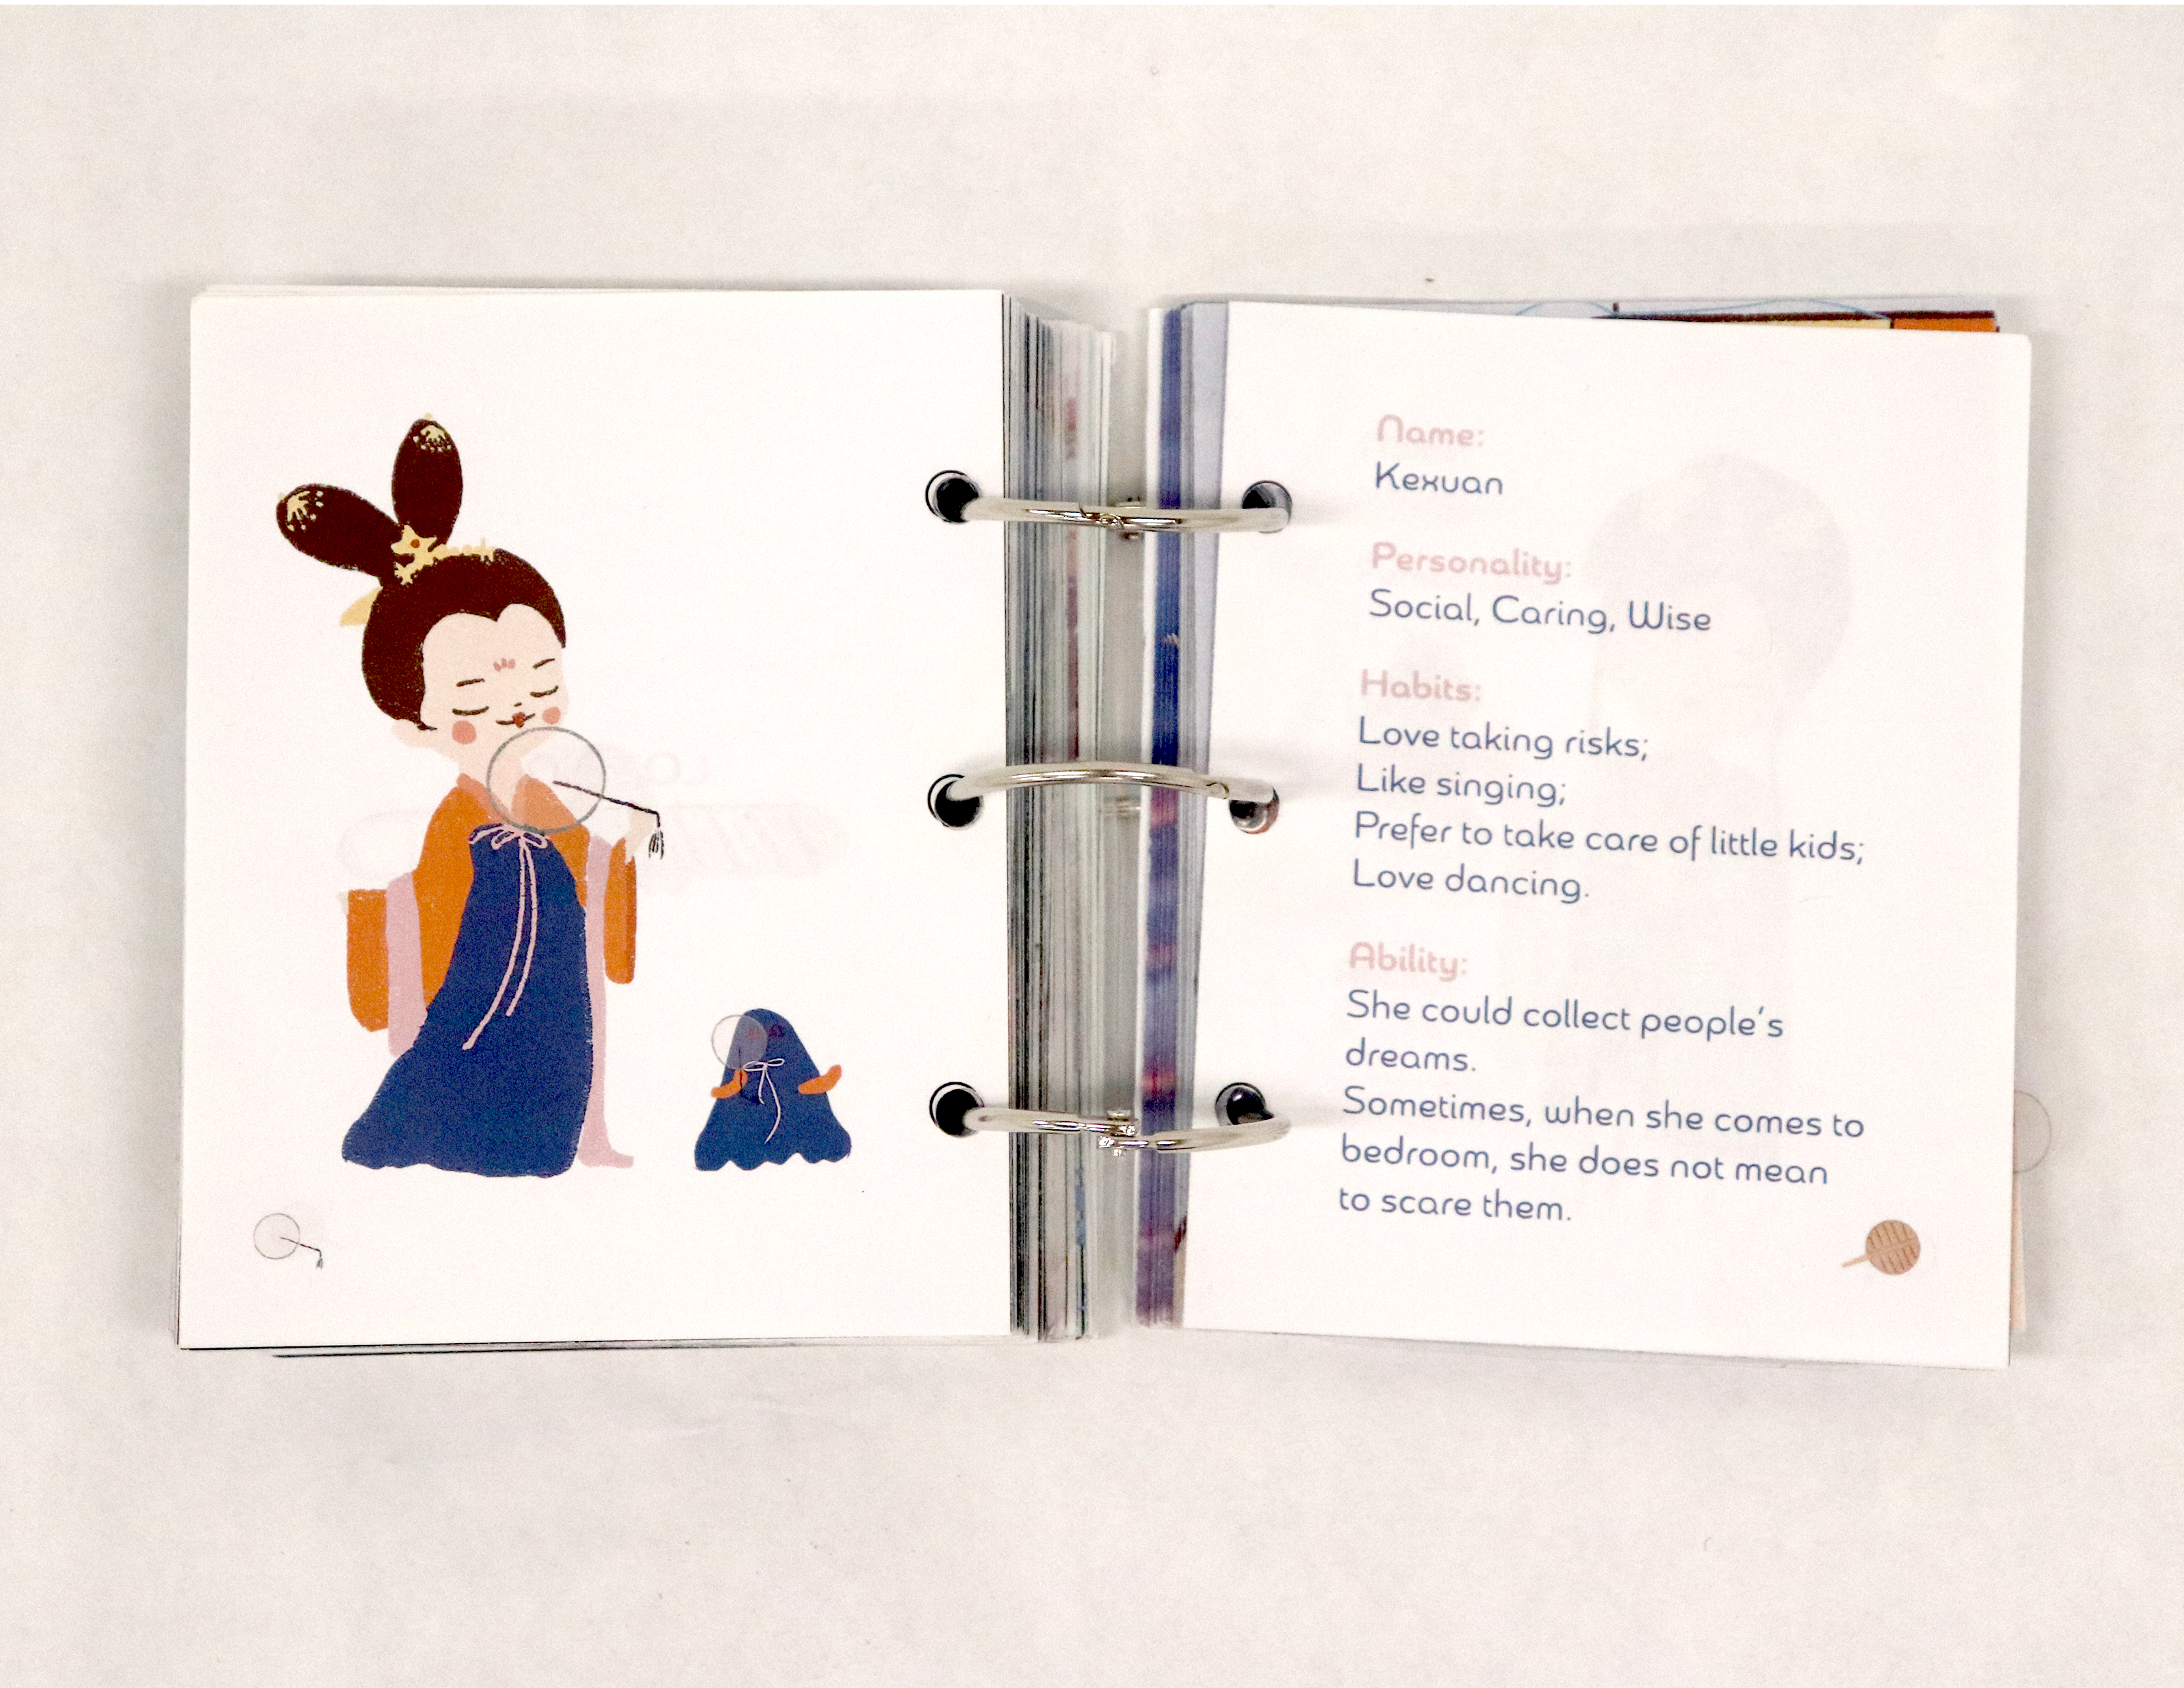 Name:
Kexuan
Personality:
Social, Caring, Wise
Habits:
Love taking risks;
Like singing;
Prefer to take care of little kids;
Love dancing.
Ability:
She could collect people's
dreams.
Sometimes, when she comes to
bedroom, she does not mean
to scare them.